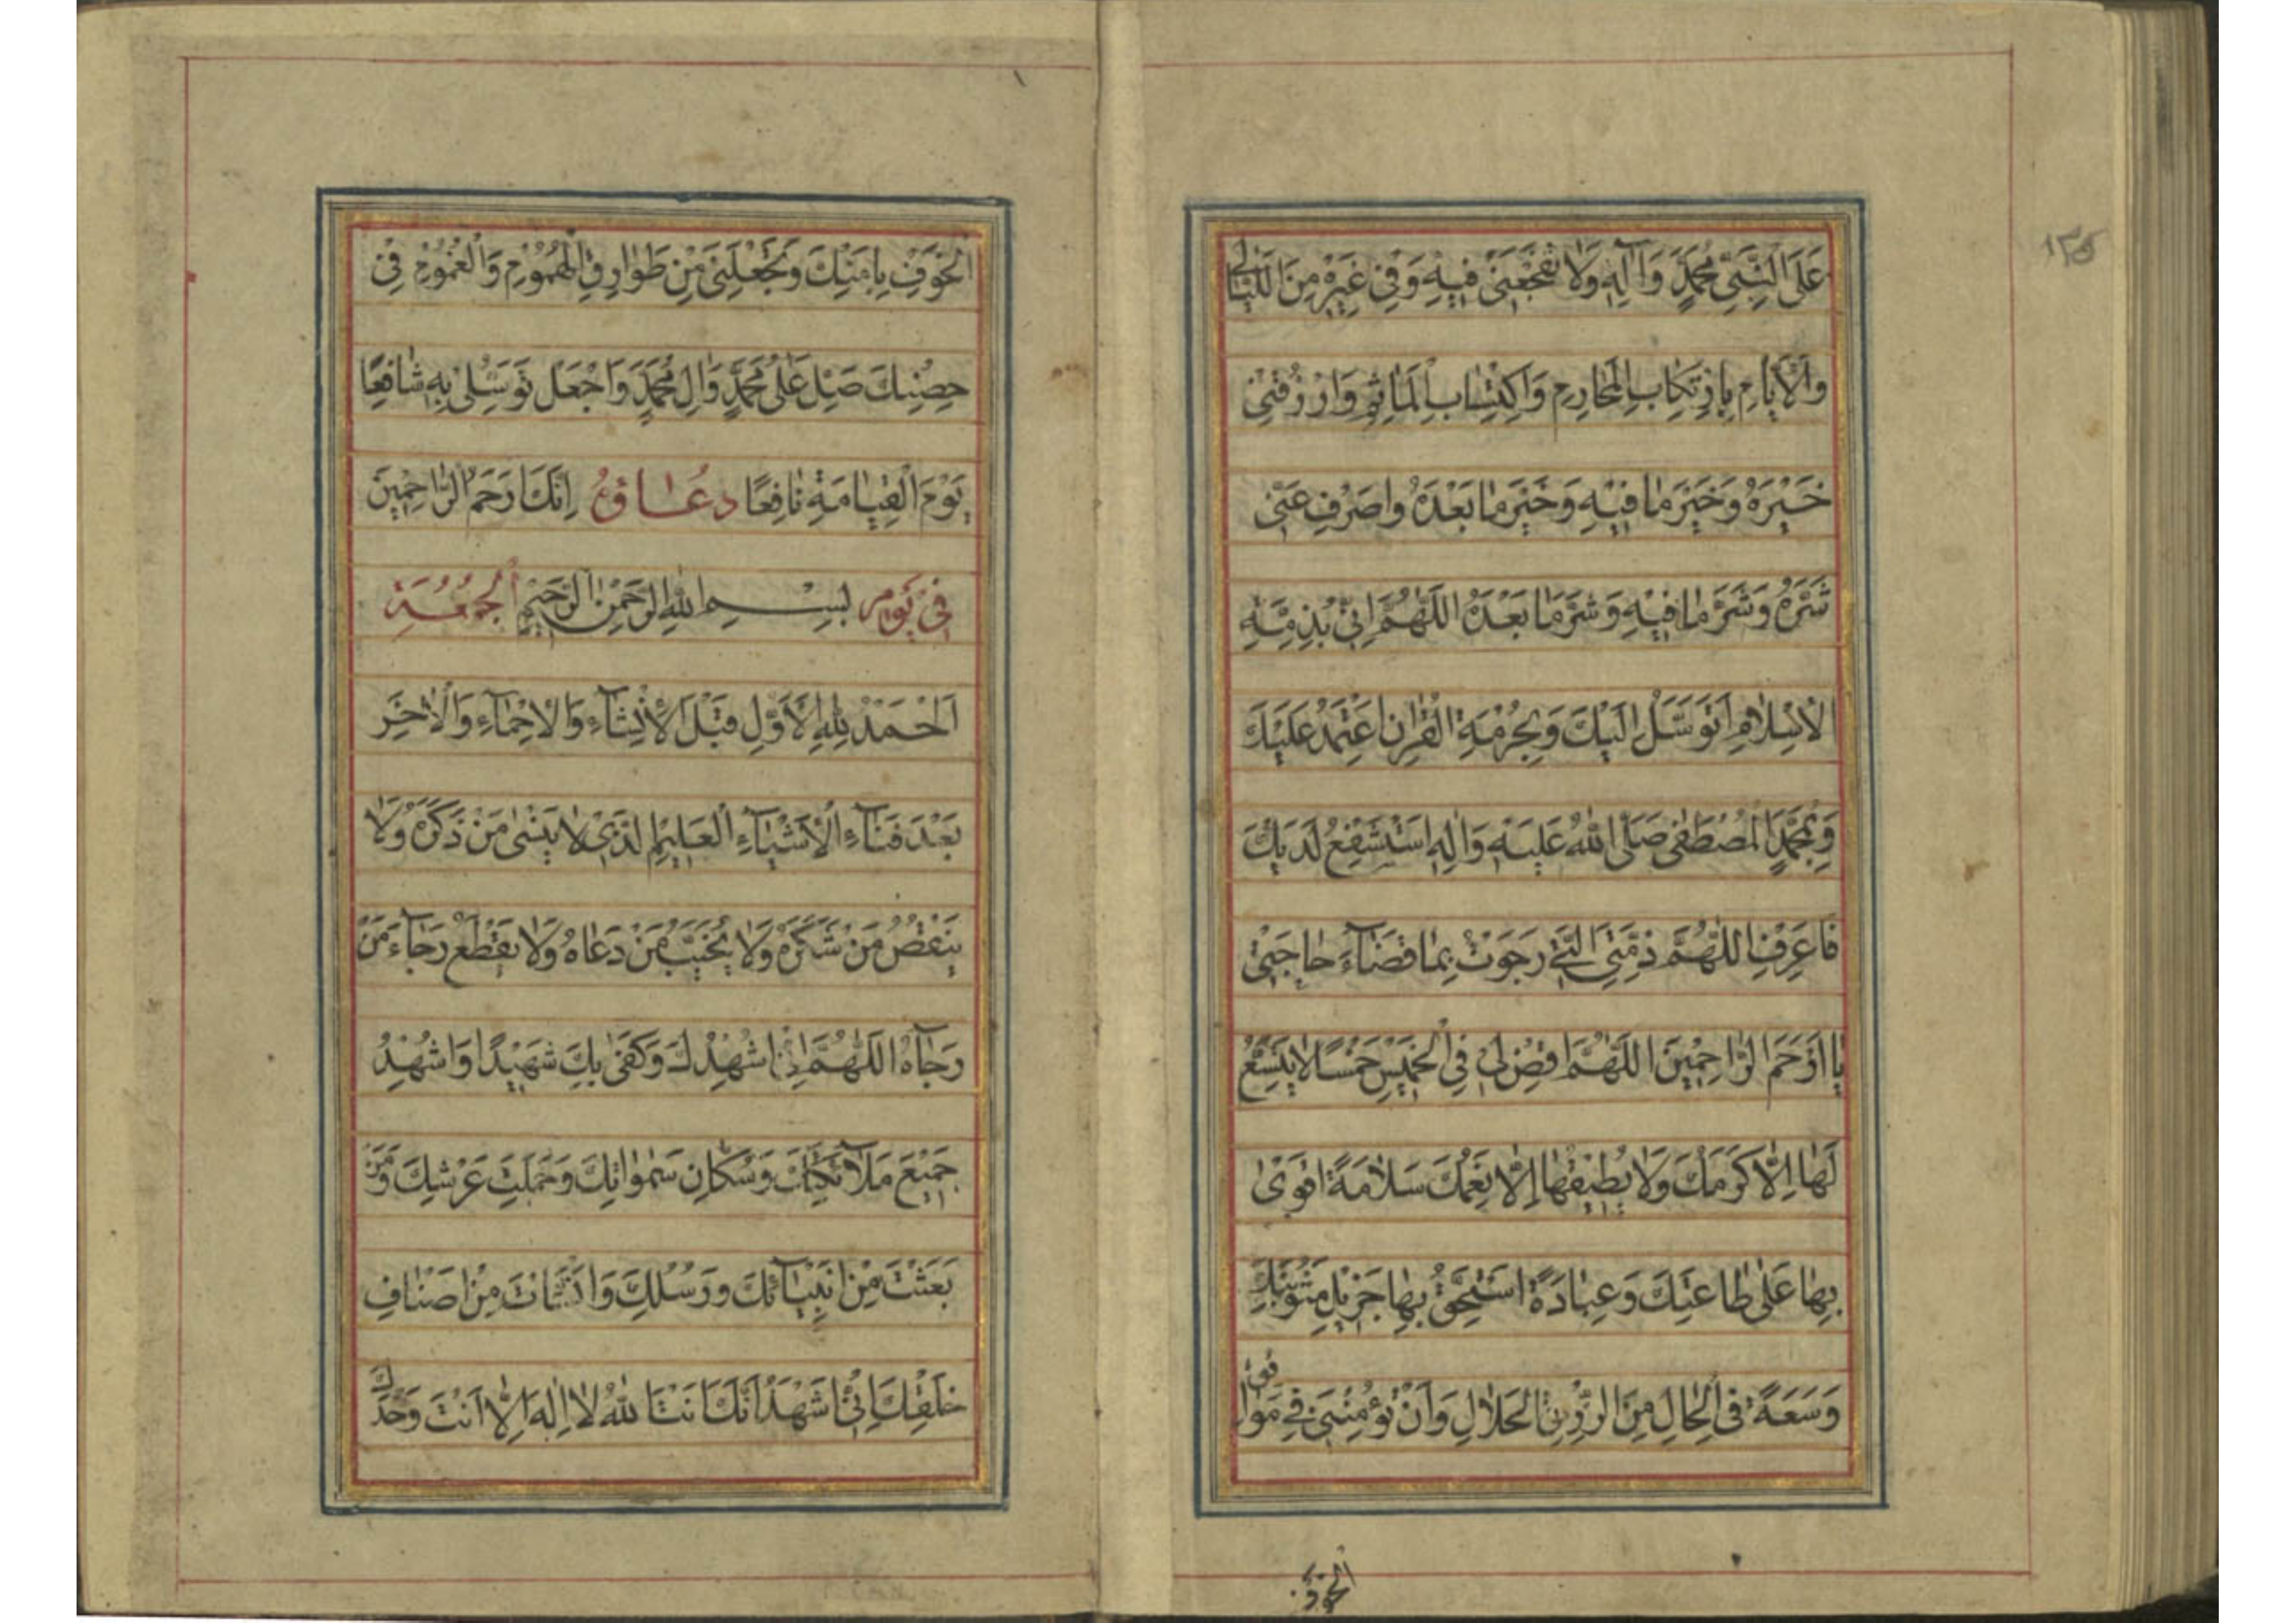 ۱۲۵
عَلَی النَّبِیِّ مُحَمَّدٍ وَآلِهِ وَلَا تَفْجَعْنِی فِیهِ وَفِی غَیْرِهِ مِنَ اللَّیَالِی
وَالْأَیَّامِ بِارْتِکَابِ الْمَحَارِمِ وَاکْتِسَابِ الْمَآثِمِ وَارْزُقْنِی
خَیْرَهُ وَخَیْرَ مَا فِیهِ وَخَیْرَ مَا بَعْدَهُ وَاصْرِفْ عَنِّی
شَرَّهُ وَشَرَّ مَا فِیهِ وَشَرَّ مَا بَعْدَهُ اللَّهُمَّ اِنِّی بِذِمَّةِ
الْاِسْلَامِ اَتَوَسَّلُ اِلَیْكَ وَبِحُرْمَةِ الْقُرْاٰنِ اَعْتَمِدُ عَلَیْكَ
وَبِمُحَمَّدٍ الْمُصْطَفٰی صَلَّی اللهُ عَلَیْهِ وَاٰلِهِ اَسْتَشْفِعُ لَدَیْكَ
فَاعْرِفِ اللّٰهُمَّ ذِمَّتِیَ الَّتِی رَجَوْتُ بِهَا قَضَآءَ حَاجَتِی
یَا اَرْحَمَ الرَّاحِمِینَ اللّٰهُمَّ اقْضِ لِی فِی الْخَمِیسِ خَمْسًا لَا یَتَّسِعُ
لَهَا اِلَّا کَرَمُكَ وَلَا یُطِیقُهَا اِلَّا نِعَمُكَ سَلَامَةً اَقْوٰی
بِهَا عَلٰی طَاعَتِكَ وَعِبَادَةً اَسْتَحِقُّ بِهَا جَزِیلَ مَثُوبَتِكَ
وَسَعَةً فِی الْحَالِ مِنَ الرِّزْقِ الْحَلَالِ وَاَنْ تُؤْمِنَنِی فِی مَوَاقِفِ
الخوف
الْخَوْفِ بِاَمْنِكَ وَتَجْعَلَنِی مِنْ طَوَارِقِ الْهُمُومِ وَالْغُمُومِ فِی
حِصْنِكَ صَلِّ عَلٰی مُحَمَّدٍ وَاٰلِ مُحَمَّدٍ وَاجْعَلْ تَوَسُّلِی بِهِ شَافِعًا
یَوْمَ الْقِیٰمَةِ نَافِعًا دعاؤُ اِنَّكَ اَرْحَمُ الرَّاحِمِینَ
فِی یَوْمِ بِسْمِ اللهِ الرَّحْمٰنِ الرَّحِیمِ الْجُمُعَةِ
اَلْحَمْدُ لِلّٰهِ الْاَوَّلِ قَبْلَ الْاِنْشَآءِ وَالْاِحْیَآءِ وَالْاٰخِرِ
بَعْدَ فَنَآءِ الْاَشْیَآءِ الْعَلِیمِ الَّذِی لَا یَنْسٰی مَنْ ذَکَرَهُ وَلَا
یَنْقُصُ مَنْ شَکَرَهُ وَلَا یُخَیِّبُ مَنْ دَعَاهُ وَلَا یَقْطَعُ رَجَآءَ مَنْ
رَجَاهُ اللّٰهُمَّ اِنِّی اُشْهِدُكَ وَکَفٰی بِكَ شَهِیدًا وَاُشْهِدُ
جَمِیعَ مَلَآئِکَتِكَ وَسُکَّانَ سَمٰوَاتِكَ وَحَمَلَةَ عَرْشِكَ وَمَنْ
بَعَثْتَ مِنْ اَنْبِیَآئِكَ وَرُسُلِكَ وَاَنْشَاْتَ مِنْ اَصْنَافِ
خَلْقِكَ اَنِّی اَشْهَدُ اَنَّكَ اَنْتَ اللهُ لَا اِلٰهَ اِلَّا اَنْتَ وَحْدَكَ